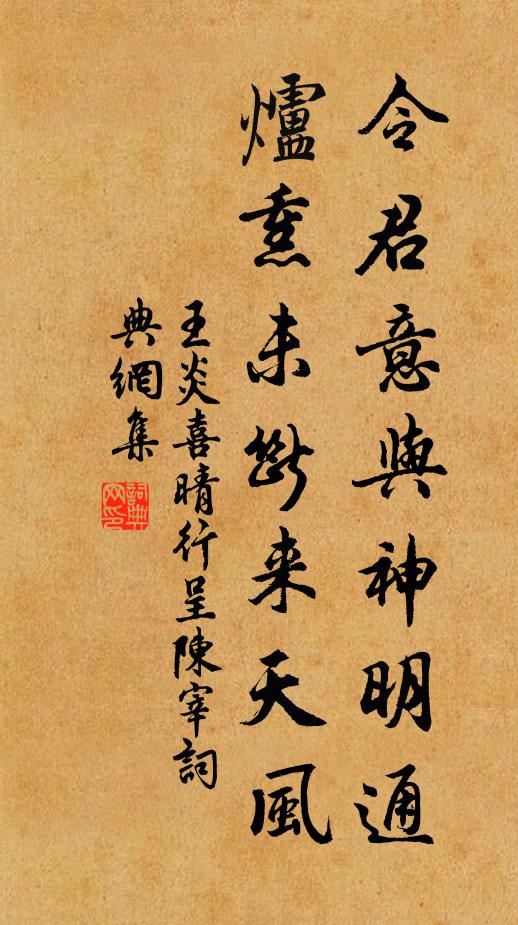 令君意與神明通
爐熏未斷来天風
王炎喜晴行呈陳宰詞
典網集
詞典网印